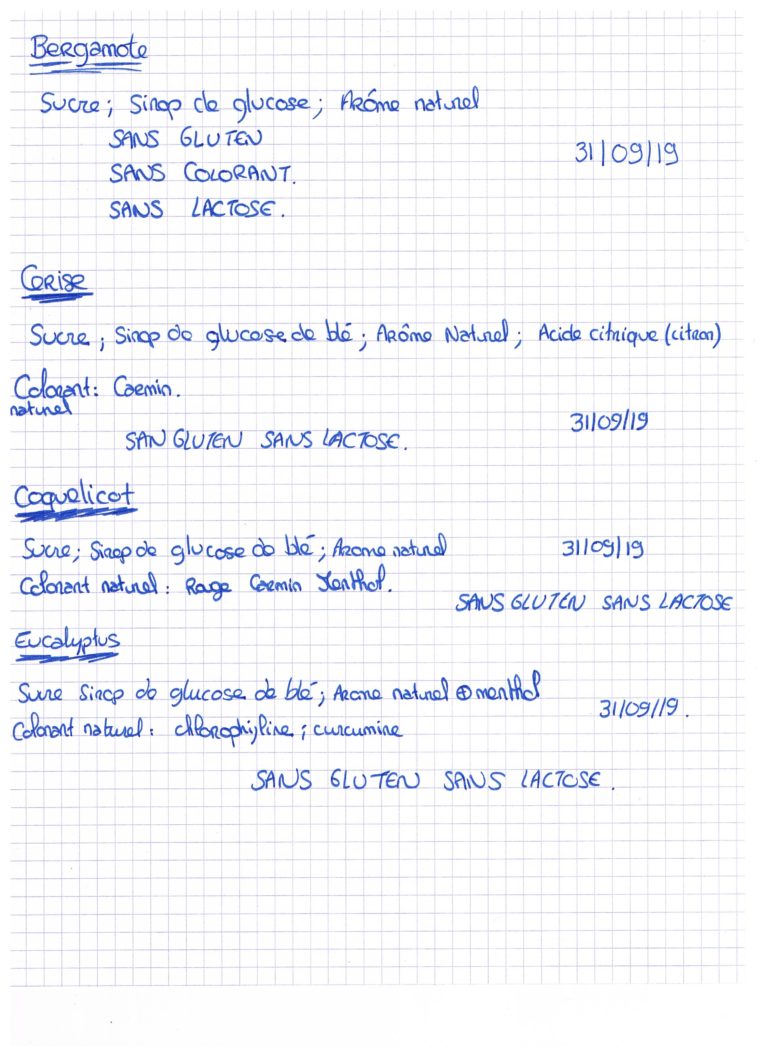 Bergamote
Sucre; Sirop de glucose; Arôme naturel
SANS GLUTEN
31/09/19
SANS COLORANT.
SANS LACTOSE.
Cerise
Sucre; Sirop de glucose de blé; Arôme Naturel; Acide citrique (citron)
Colorant: Carmin.
naturel
31/09/19
SAN GLUTEN SANS LACTOSE.
Coquelicot
Sucre; Sirop de glucose de blé; Arome naturel
31/09/19
Colorant naturel: Rouge Carmin
SANS GLUTEN SANS LACTOSE
Eucalyptus
Sucre Sirop de glucose de blé; Arome naturel ⊕ menthol
31/09/19.
Colorant naturel: chlorophyline; curcumine
SANS GLUTEN SANS LACTOSE.